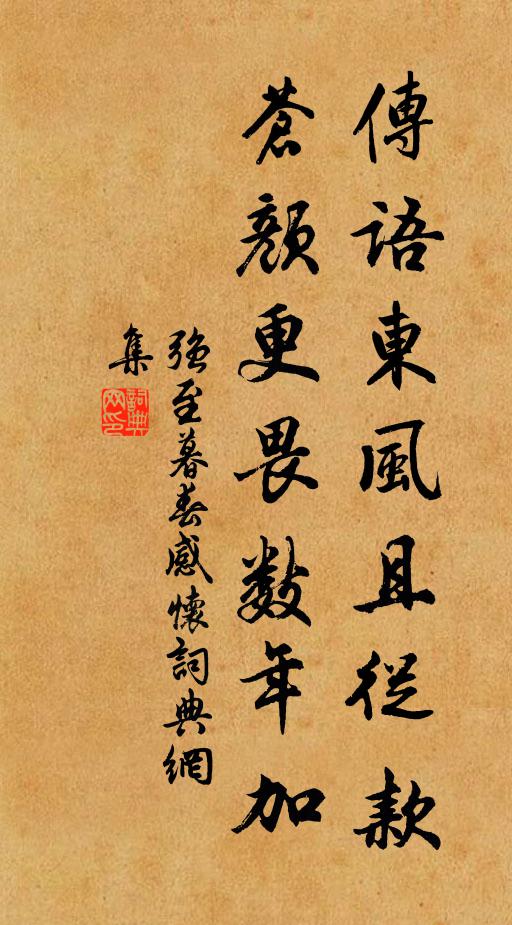 傳語東風且從款
蒼顏更畏數年加
強至暮春感懷詞典網
集
詞典
网印